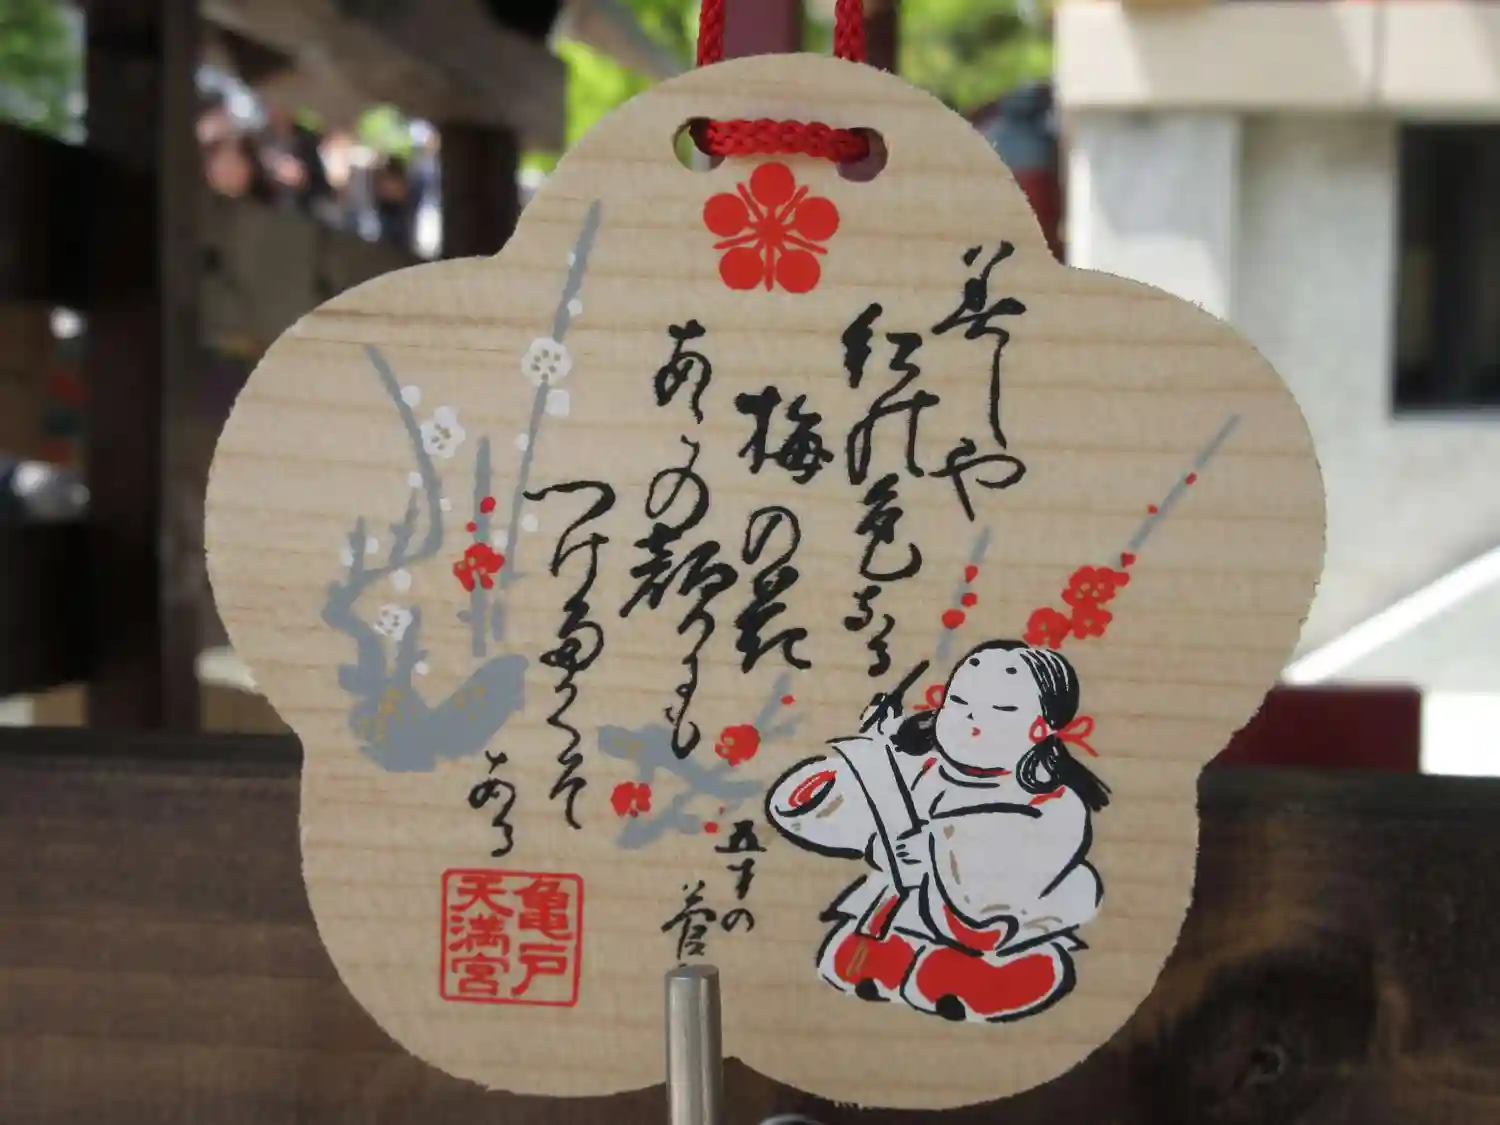 美しや
紅の色なる
梅の花
あこの顔にも
つけたくそ
ある
五才の
菅
亀戸
天満宮